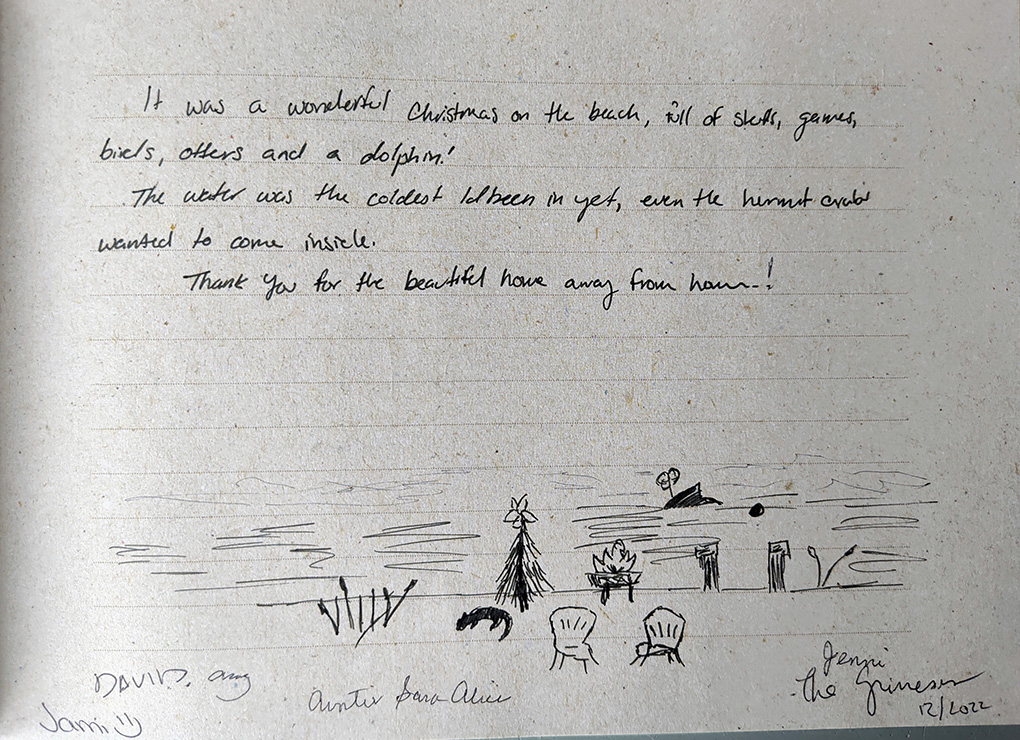 It was a wonderful Christmas on the beach, full of skulls, games,
birds, otters and a dolphin!
The water was the coldest I'd been in yet, even the hermit crabs
wanted to come inside.
Thank you for the beautiful home away from home!
DAVID. Amy
Auntie Sara Alice
Jenni
The
Jami
12/2022